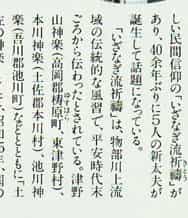 しい民間信仰の「いざなぎ流祈禱」が
あり、40余年ぶりに5人の新太夫が
誕生して話題になっている。
「いざなぎ流祈禱」は、物部川上流
域の伝統的な神楽で、平安時代末
ごろから伝わったとされている。津野
山神楽(高岡郡梼原町、東津野村)、
本川神楽(土佐郡本川村)、池川神
楽(吾川郡池川町)などとともに「土